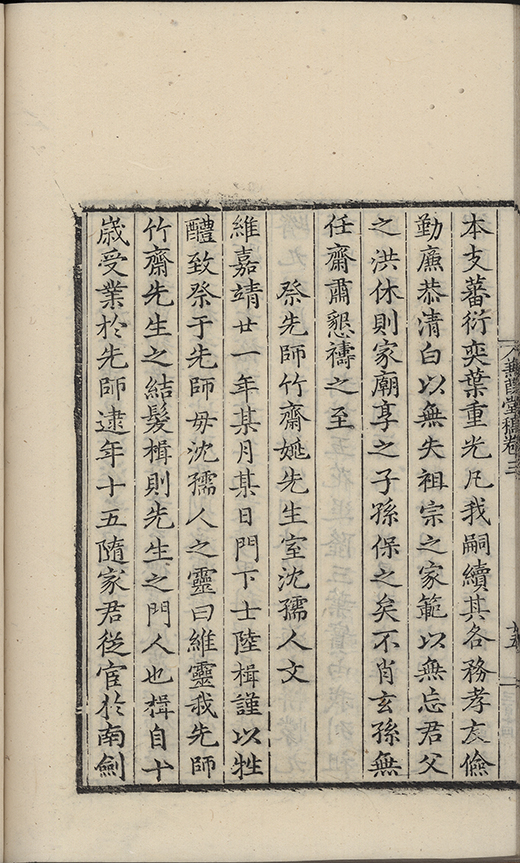 本支蕃衍奕葉重光凡我嗣續其各務孝友儉
勤廉恭清白以無失祖宗之家範以無忘君父
之洪休則家廟享之子孫保之矣不肖玄孫無
任齋肅懇禱之至
祭先師竹齋娫先生室沈孺人文
維嘉靖廿一年某月某日門下士陸楫謹以牲
醴致祭于先師母沈孺人之靈曰維靈我先師
竹齋先生之結髮楫則先生之門人也楫自十
歲受業於先師逮年十五隨家君從宦於南劍